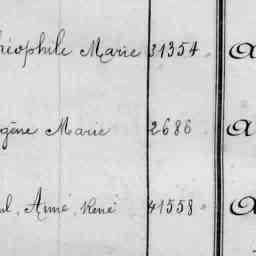 héophile Marie 31354. A
gène Marie 2686. A
ul, Anné, René 41558. A